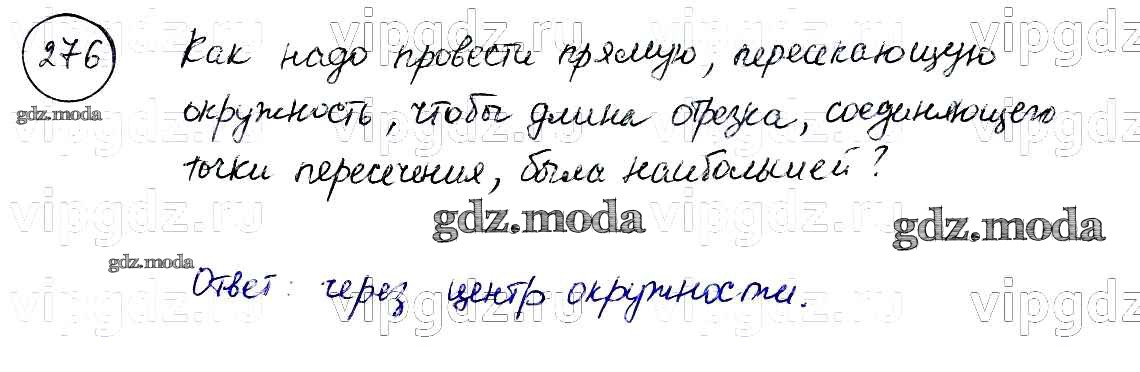 276
Как надо провести прямую, пересекающую
gdz.moda
окружность, чтобы длина отрезка, соединяющего
точки пересечения, была наибольшей?
gdz.moda gdz.moda
gdz.moda
Ответ: через центр окружности.
vipgdz.ru